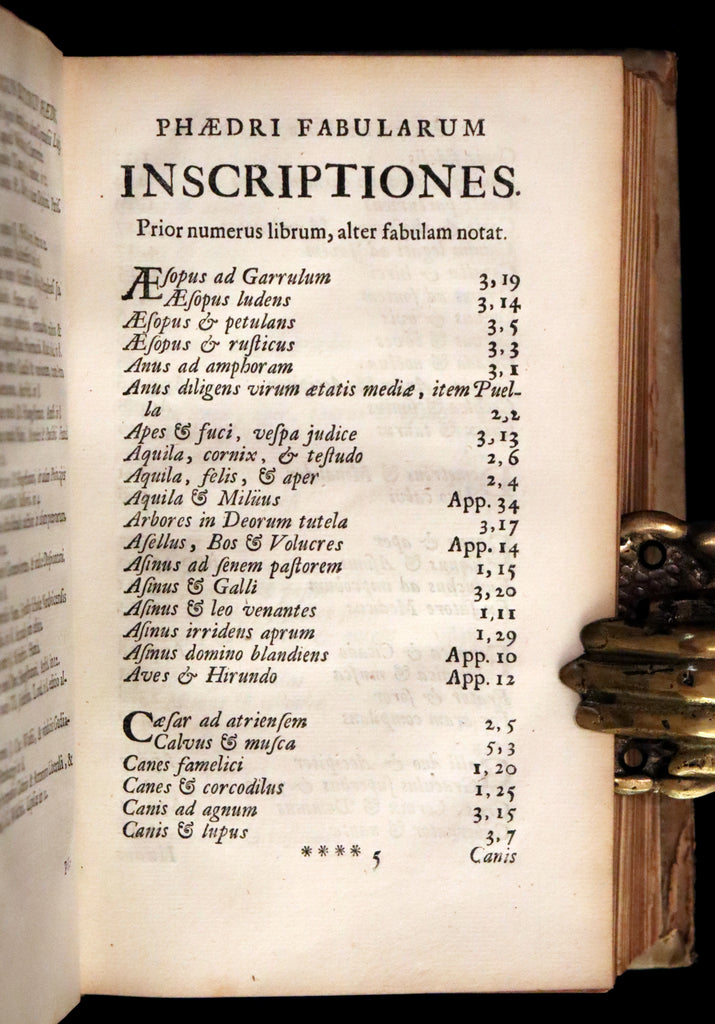 PHÆDRI FABULARUM
INSCRIPTIONES.
Prior numerus librum, alter fabulam notat.
Æſopus ad Garrulum 3, 19
Æſopus ludens 3, 14
Æſopus & petulans 3, 5
Æſopus & ruſticus 3, 3
Anus ad amphoram 3, 1
Anus diligens virum ætatis mediæ, item Puel-
la 2, 2
Apes & fuci, veſpa judice 3, 13
Aquila, cornix, & teſtudo 2, 6
Aquila, felis, & aper 2, 4
Aquila & Milüus App. 34
Arbores in Deorum tutela 3, 17
Aſellus, Bos & Volucres App. 14
Aſinus ad ſenem paſtorem 1, 15
Aſinus & Galli 3, 20
Aſinus & leo venantes 1, 11
Aſinus irridens aprum 1, 29
Aſinus domino blandiens App. 10
Aves & Hirundo App. 12
Cæſar ad atrienſem 2, 5
Calvus & muſca 5, 3
Canes famelici 1, 20
Canes & corcodilus 1, 25
Canis ad agnum 3, 15
Canis & lupus 3, 7
**** 5 Canis